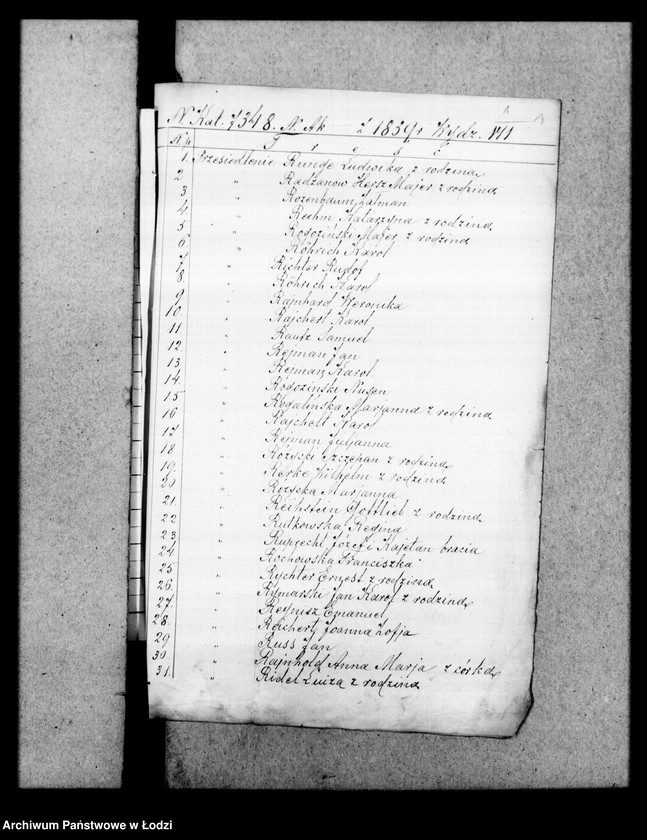 N Kat. 7348. N. Ak — Z 1839 r Wydz. 141
N p T r e ś ć
1. Przesiedlenie Runge Ludwika z rodziną
2 " Radzanow Hersz Majer z rodziną
3 " Rozenbaum Zalman
4 " Reehm Katarzyna z rodziną
5 " Rogoziński Majer z rodziną
6 " Röhrich Karol
7 " Richter Rudolf
8 " Röhrich Karol
9 " Rajnhard Weronika
10 " Rajchert Karol
11 " Rautz Samuel
12 " Rejman Jan
13 " Rejman Karol
14 " Rogoziński Nusen
15 " Rogalińska Marjanna z rodziną
16 " Rajchelt Karol
17 " Rejman Juljanna
18 " Rózycki Szczepan z rodziną
19. " Rerke Wilhelm z rodziną
20 " Rozycka Marjanna
21. " Reihstein Gottlieb z rodziną
22 " Rutkowska Regina
23 " Ruprecht Józef i Kajetan bracia
24 " Rochowska Franciszka
25 " Rychter Ernest z rodziną
26. " Rymarski Jan Karol z rodziną
27. " Rejnisz Emanuel
28. " Reichert Joanna Zofja
29 " Russ Jan
30 " Rajnhold Anna Marja z córką
31. " Ridel Luiza z rodziną
Archiwum Państwowe w Łodzi